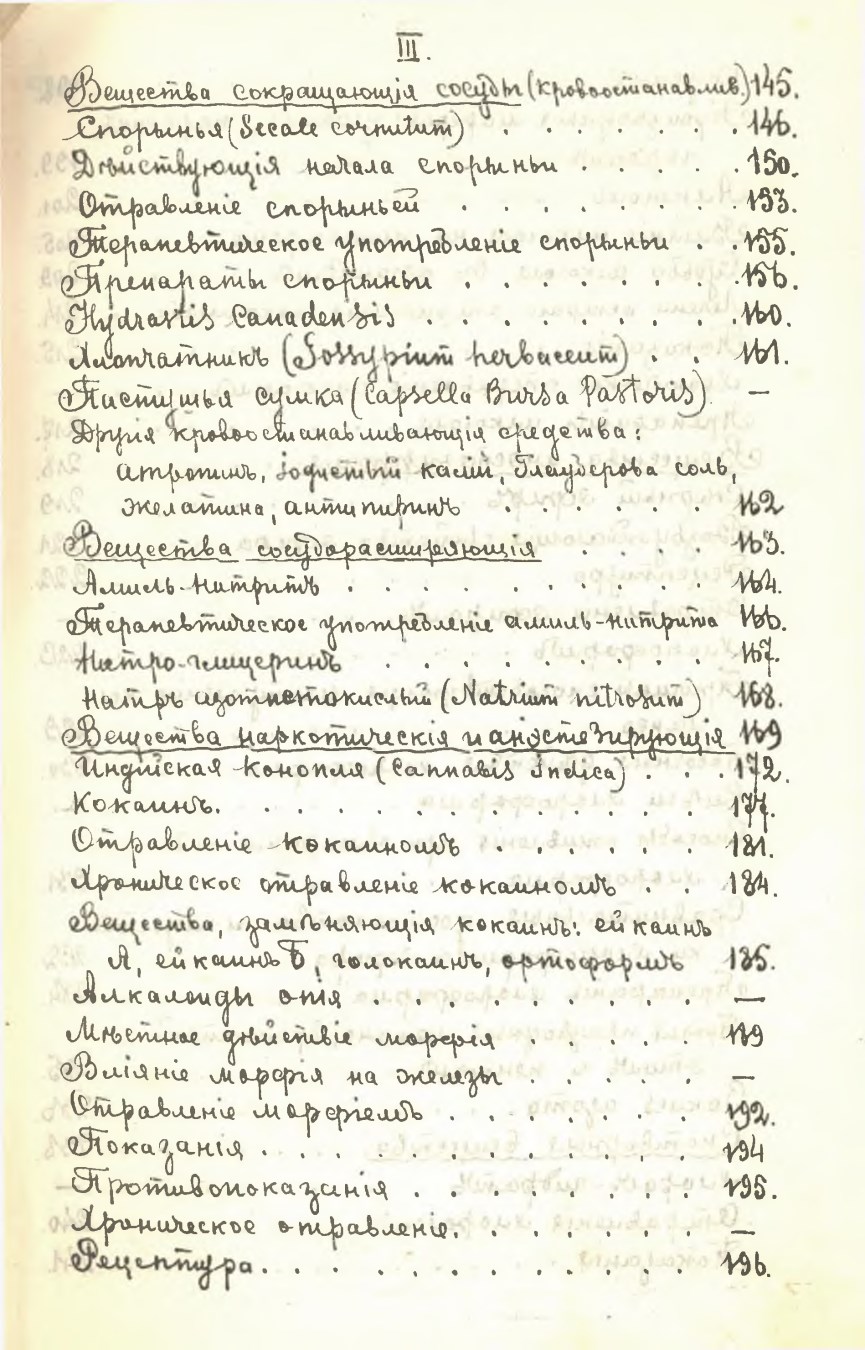 III.
Вещества сокращающія сосуды (кровоостанавлив.) 145.
Спорынья (Secale cornutum) . . . . . . . 146.
Дѣйствующія начала спорыньи . . . . . 150.
Отравленіе спорыньей . . . . . . . 153.
Терапевтическое употребленіе спорыньи . . 155.
Препараты спорыньи . . . . . . . . 156.
Hydrastis Canadensis . . . . . . . . . 160.
Хлопчатникъ (Gossypium herbaceum) . . 161.
Пастушья сумка (Capsella Bursa Pastoris) —
Другія кровоостанавливающія средства:
атропинъ, іодистый калій, Глауберова соль,
желатина, антипиринъ . . . . . . 162
Вещества сосударасширяющія . . . . 163.
Амиль-нитритъ . . . . . . . . . . 164.
Терапевтическое употребленіе амиль-нитрита 166.
Нитро-глицеринъ . . . . . . . . . 167.
Натръ азотистокислый (Natrium nitrosum) 168.
Вещества наркотическія и анэстезирующія 169
Индійская конопля (Cannabis Indica) . . . 172.
Кокаинъ. . . . . . . . . . . . . 177.
Отравленіе кокаиномъ . . . . . . 181.
Хроническое отравленіе кокаиномъ . . 184.
Вещества, замѣняющія кокаинъ: ейкаинъ
А, ейкаинъ Б, голокаинъ, ортоформъ 185.
Алкалоиды опія . . . . . . . . . —
Мѣстное дѣйствіе морфія . . . . . 189
Вліяніе морфія на железы . . . . . —
Отравленіе морфіемъ . . . . . . . 192.
Показанія . . . . . . . . . . . . 194
Противопоказанія . . . . . . . . 195.
Хроническое отравленіе. . . . . . . —
Рецептура. . . . . . . . . . . . 196.